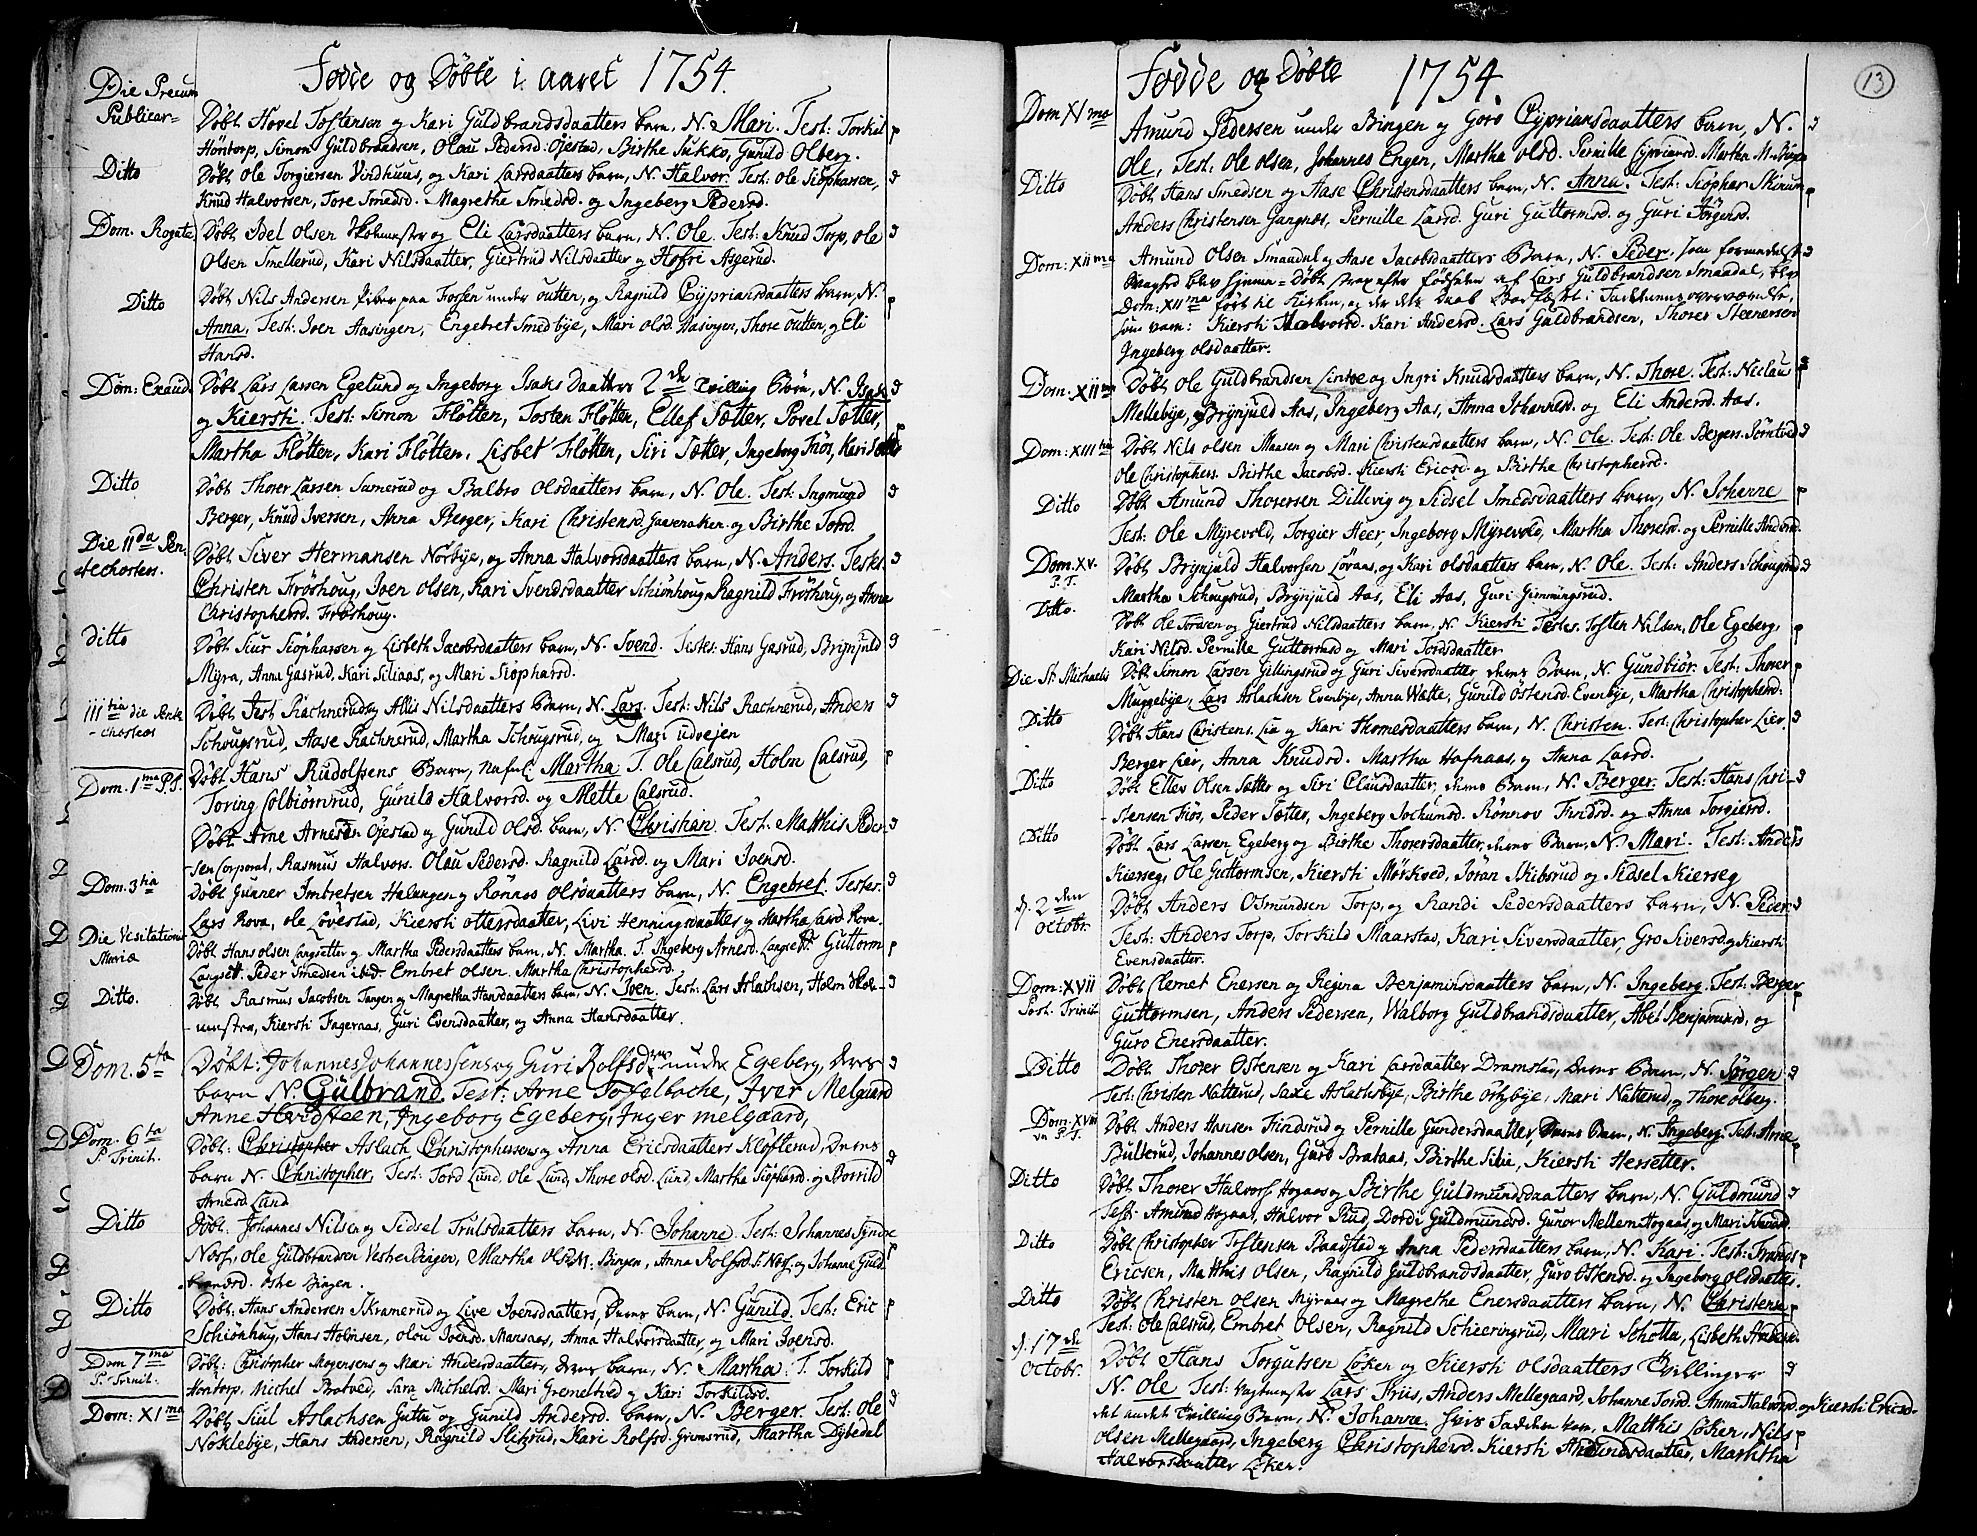 Fødde og Døbte i aaret 1754.
Die Precum
Publicar=
Døbt Hovel Tostensen og Kari Guldbrandsdaatters barn, N. Mari. Test: Torkil
Høntorp, Simon Guldbrandsen, Olau Pedersd. Ojestad, Birthe Sukko, Gunild Olberg.
Ditto
Døbt Ole Torgiersen Vindhuus, og Kari Larsdaatters barn, N. Halvor. Test: Ole Siøphersen,
Knud Halvorsen, Tore Smedsd. Magrethe Smedsd. og Ingeberg Pedersd.
Dom. Rogate
Døbt Idel Olsen Skolemester og Eli Larsdaatters barn, N. Ole. Test: Knud Torp, Ole
Olsen Smellerud, Kari Nilsdaatter, Giertrud Nilsdaatter og Asgerud.
Ditto
Døbt Nils Andersen Piber paa Fossen under outten, og Ragnild Cypriansdaatters barn, N.
Anna, Test: Joen Aasingen, Engebret Smedbye, Mari Olsd. Aasingen, Thore Outten, og Eli
Hansd.
Dom: Exaud.
Døbt Lars Larsen Egelund og Ingeborg Isaks Daatters 2 de Tvilling Børn, N. Isak
og Kiersti. Test: Simon Fløtten, Tosten Fløtten, Ellef Sætter, Povel Sætter,
Martha Fløtten, Kari Fløtten, Lisbet Fløtten, Siri Sætter, Ingeborg Friis, Kari
Ditto
Døbt Thorer Larsen Samerud og Balbro Olsdaatters barn, N. Ole. Test: Ingmugd
Berger, Knud Iversen, Anna Berger, Kari Christensd. og Birthe Torsd.
Die IIda Pen-
techostes.
Døbt Siver Hermansen Norbye, og Anna Halvorsdaatters barn, N. Anders. Testes.
Christen Frøshoug, Joen Olsen, Kari Svendsdaatter Schiønhoug, Ragnild Frøshoug, og Anne
Christophersd. Frøshoug.
ditto
Døbt Siur Siøphersen og Lisbeth Jacobsdaatters barn, N. Svend. Testes: Hans Gasrud, Brynjuld
Myra, Anna Gasrud, Kari Siliaas, og Mari Siøphersd.
IIItia die Pente
-chostes
Døbt Test Rachnerud og Allis Nilsdaatters Barn, N. Lars. Test: Nils Rachnerud, Anders
Schougsrud, Aase Rachnerud, Martha Schougsrud, og Mari Udvejen
Dom. 1ma P.S.
Døbt Hans Rudolfsens Barn, Nafnl: Martha T. Ole Calsrud, Holm Calsrud,
Toring Colbiørnrud, Gunild Halvorsd. og Mette Calsrud.
Døbt Arne Arnesen Ojestad og Gunild Olsd. barn, N. Christian. Test: Matthis Peder-
sen Corporal, Rasmus Halvors. Olau Pedersd. Ragnild Larsd. og Mari Joensd.
Dom. 3tia
Døbt Gunner Imbretsen Halangen og Rønnau Olsdaatters barn, N. Engebret. Testes.
Lars Rova, Ole Løvestad, Kiersti Ottersdaatter, Livi Henningsdaatter og Martha Larsd. Rova.
Die Visitationis
Mariæ
Døbt Hans Olsen Langsetter og Martha Pedersdaatters barn, N. Martha. T. Ingeberg Arnesd. Langset. Guttorm
Langset. Peder Smedsen ibd. Embret Olsen. Martha Christophersd.
Ditto.
Døbt Rasmus Jacobsen Tangen og Magretha Hansdaatters barn, N. Iven. Test: Lars Aslachsen, Holm Skole-
-mester, Kiersti Fageraas, Guri Evensdaatter, og Anna Hansdaatter.
Dom. 5ta
Døbt: Johannes Johannessens og Guri Rolfsd under Egeberg, deres
barn N. Gulbrand. Test: Arne Tofelbache, Iver Melgaard
Anne Hvidsteen, Ingeborg Egeberg, Inger melgaard,
Dom. 6ta
P. Trinit.
Døbt: Christopher Aslach Christophersens og Anna Ericsdaatters Kløfterud, Deres
barn N. Christopher, Test: Tord Lund, Ole Lund, Thore Olsd. Lund, Martha Siøphersd. og Borrild
Arnesd. Lund
Ditto
Døbt: Johannes Nilsen og Sidsel Trulsdaatters barn, N. Johanne. Test: Johannes Syndre
Noss, Ole Guldbrandsen Vestre Bingen, Martha Olsd. M: Bingen, Anna Rolfsd. S. Noss, og Johanne Guld
brandsd. Østre Bingen.
Ditto
Døbt: Hans Andersen Skramerud og Live Joensdaatters, Deres barn, N. Gunild. Test: Eric
Schiønhug, Hans Holmsen, Olou Joensd. Mansaas, Anna Halvorsdaatter og Mari Joensd.
Dom 7ma
P. Trinit.
Døbt: Christopher Mogensens og Mari Andersdaatters, deres barn, N. Martha: T. Torkild
Høntorp, Michel Bratved, Sara Michelsd. Mari Gremelved og Kari Torkildsd.
Dom: XIma
Døbt Siul Aslachsen Guttu og Gunild Andersd. barn, N. Berger. Test: Ole
Noklebye, Hans Andersen, Ragnild Slitrud, Kari Rolfsd. Grimsrud, Martha Dybedal
Fødde og Døbte 1754.
13
Dom XIma
Amund Pedersen under Bingen og Goro Cypriansdaatters barn, N.
Ole, Test: Ole Olsen, Johannes Engen, Martha Olsd. Pernille Cypriansd. Martha M. Bingen
Ditto
Døbt Hans Smedsen og Aase Christensdaatters barn, N. Anna. Test: Siøphar Skinum
Anders Christensen Gangnes, Pernille Larsd. Guri Guttormsd. og Guri Jørgensd.
Dom: XIIma
Amund Olsen Smaadal og Aase Jacobsdaatters Barn, N. Peder. som formedelst
Svaghed blev hjemme=Døbt strax efter fødselen af Lars Guldbrandsen Smaadal, blev
Dom: XIIma ført til Kirken, og der dets Daab Stadfæstet i Faddernes overværelse,
som vare: Kiersti Halvorsd. Kari Andersd. Lars Guldbrandsen, Thorer Steenersen
Ingeberg Olsdaatter.
Dom: XIIma
Døbt Ole Guldbrandsen Lintoe og Ingri Knudsdaatters barn, N. Thore. Test: Niclau
Mellebye, Brynjuld Aas, Ingeberg Aas, Anna Johannesd. og Eli Andersd. Aas.
Dom: XIIItia
Døbt Nils Olsen Maasen og Mari Christensdaatters barn, N. Ole. Test: Ole Bergers. Sørntved
Ole Christophers. Birthe Jacobsd. Kiersti Ericsd. og Birthe Christophersd.
Ditto
Døbt Amund Thorersen Dillevig og Sidsel Smedsdaatters barn, N. Johanne
Test: Ole Myrevold, Torgier Heer, Ingeborg Myrevold, Martha Thoresd. og Pernille Andersd.
Dom. XV.
P. T.
Døbt Brynjuld Halvorsen Løvaas, og Kari Olsdaatters barn, N. Ole. Test: Anders Schougsrud
Martha Schougsrud, Brynjuld Aas, Eli Aas, Guri Gimmingsrud.
Ditto.
Døbt Ole Toresen og Giertrud Nilsdaatters barn, N. Kiersti Testes. Tosten Nilsen, Ole Egeberg,
Kari Nilsd. Pernille Guttormsd og Mari Tordsdaatter
Die St. Michaelis
Døbt Simon Larsen Gillingsrud og Guri Siversdaatter, deres Barn, N. Gundbiør. Test: Thorer
Muggebye, Lars Aslachsen Evenbye, Anna Watte, Gunild Østensd. Evenbye, Martha Christophersd.
Ditto
Døbt Hans Christens. Lie og Kari Thomesdaatters barn, N. Christen. Test: Christopher Lier,
Berger Lier, Anna Knudsd. Martha Hafnaas, og Anna Larsd.
Ditto
Døbt Ellev Olsen Sætter og Siri Clausdaatter, deres Barn, N. Berger. Test: Hans Chri-
-stensen Friis, Peder Sætter, Ingeberg Jochumsd. Rønnov Findsd. og Anna Torgiersd.
Ditto
Døbt Lars Larsen Egeberg og Birthe Thorersdaatter, deres Barn, N. Mari. Test: Anders
Kierseg, Ole Guttormsen, Kiersti Mørkved, Jøran Skibsrud og Sidsel Kierseg
d. 2den
Octobr.
Døbt Anders Osmundsen Torp, og Randi Pedersdaatters barn, N. Peder.
Test: Anders Torp, Torkild Maarstad, Kari Siversdaatter, Gro Siversd. og Kiersti
Evensdaatter.
Dom: XVII
Post Trinit
Døbt Clemet Enersen og Regina Benjaminsdaatters barn, N. Ingeberg. Test: Berger
Guttormsen, Anders Pedersen, Walborg Guldbrandsdaatter, Abel Benjaminsd, og
Guro Enersdaatter.
Ditto
Døbt Thorer Ostensen og Kari Larsdaatter Dramstad, deres Barn, N. Jørgen
Test: Christen Natterud, Saxe Aslachsbye, Birthe Ørbye, Mari Natterud, og Thore Olberg.
Dom. XVIII
P. T.
Døbt Anders Hansen Findsrud og Pernille Gundersdaatter, Deres Barn, N. Ingeberg. Test: Arne
Bulterud, Johannes Olsen, Guro Brataas, Birthe Silie, Kiersti Hersetter.
Ditto
Døbt Thorer Halvors. Hogaas og Birthe Guldmundsdaatters barn, N. Guldmund
Test: Amund Hogaas, Halvor Rud, Dordi Guldmundsd. Gunor Mellem Hogaas og Mari
Ditto
Døbt Christopher Tostensen Baadstad og Anna Pedersdaatters barn, N. Kari. Test: Frands
Ericsen, Matthis Olsen, Ragnild Guldbrandsdaatter, Guro Ostensd. og Ingeborg Olsdaatter.
Ditto
Døbt Christen Olsen Myraas og Magrethe Enersdaatters barn, N. Christense
Test: Ole Calsrud, Embret Olsen, Ragnild Schieeringrud, Mari Schotta, Lisbeth Andersd.
d. 17 de
Octobr.
Døbt Hans Torgutsen Løken og Kiersti Olsdaatters Tvillinger
N. Ole Test: Vagtmester Lars Friis, Anders Mellegaard, Johanne Torsd. Anna Halvorsd. og Kiersti Ericsd.
det andet Tvilling Barn, N. Johanne. hvis Faddere vare, Matthis Løken, Nils
Olsen Mellegaard, Ingeberg Christophersd. Kiersti Amundsdaatter, Marthha
Halvorsdaatter Løken.